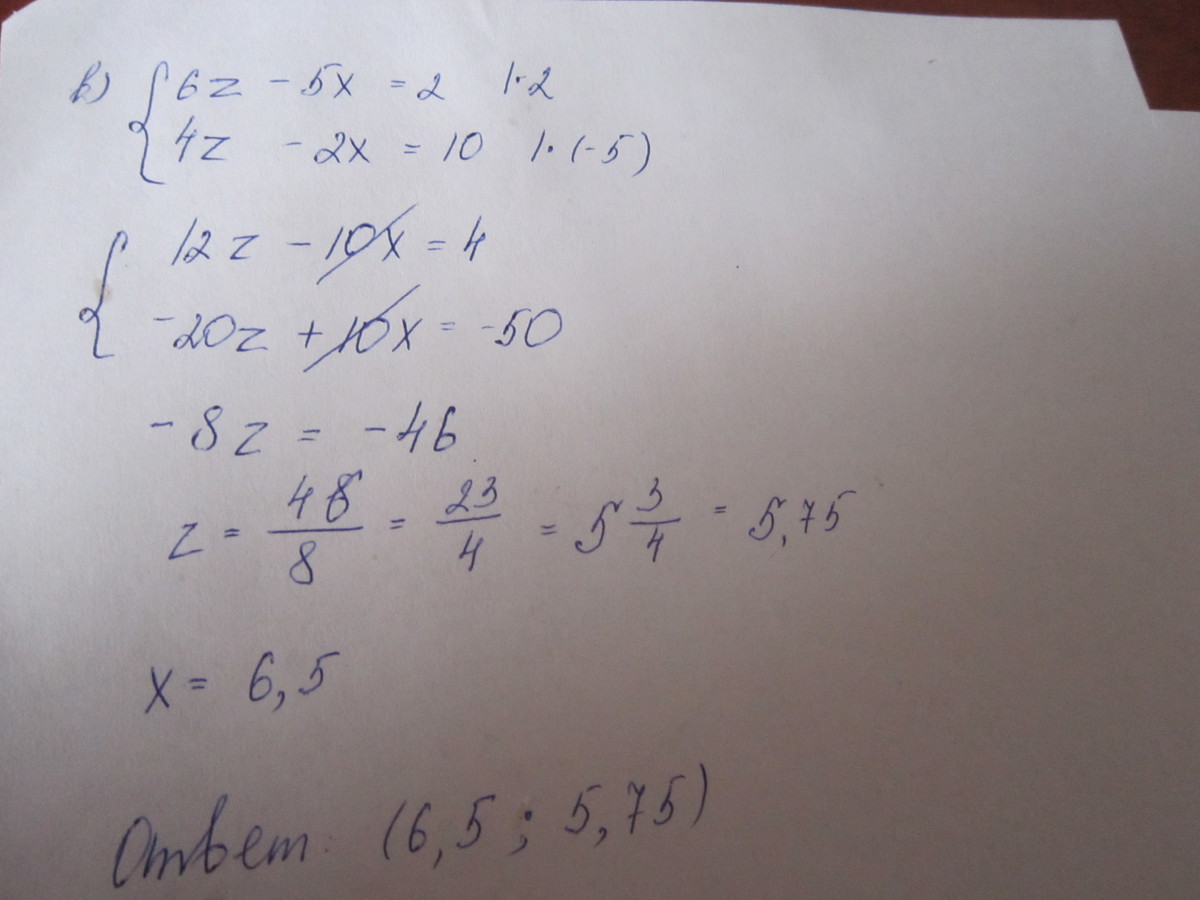 в) { 6z - 5x = 2 |·2
4z - 2x = 10 |·(-5)
{ 12z - 10x = 4
-20z + 10x = -50
-8z = -46
z = 46/8 = 23/4 = 5 3/4 = 5,75
x = 6,5
Ответ: (6,5 ; 5,75)